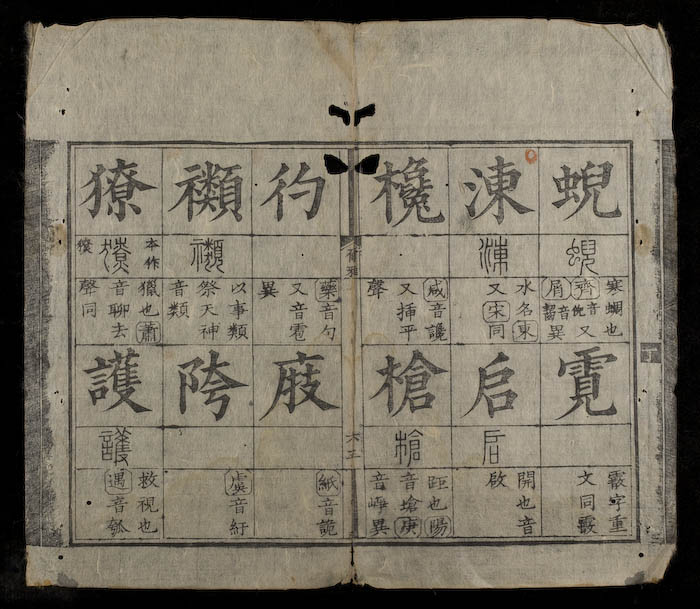 蜺
蜺
寒蜩也
齊音倪又
屑音齧異
霓
霰字重
文同霰
涷
涷
水名東
又宋同
启
启
開也音
啟
欃
咸音讒
又插平
聲
槍
槍
距也陽
音瑲庚
音崢異
爾雅
六五
彴
藥音勺
又音雹
異
庪
紙音詭
禷
禷
以事類
祭天神
音類
䧄
虞音紆
獠
獠
本作
獵也蕭
音聊去
聲同
護
護
救視也
遇音瓠